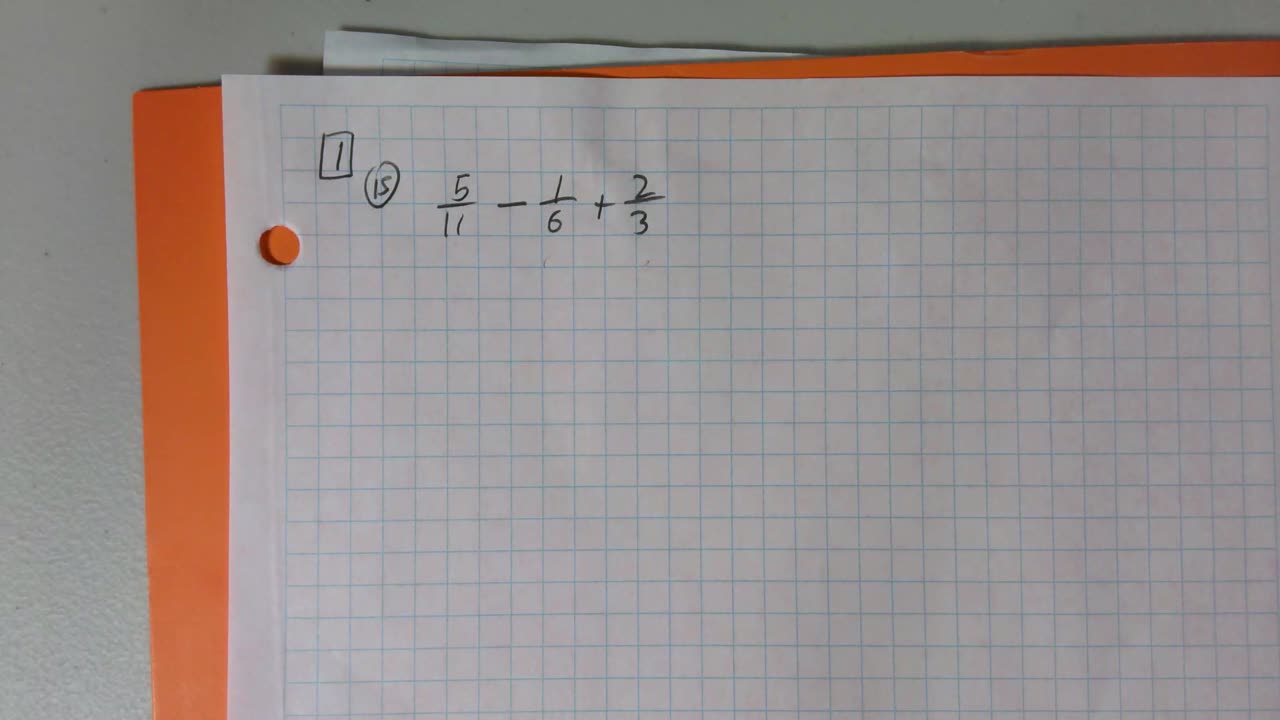 1
15 5/11 - 1/6 + 2/3